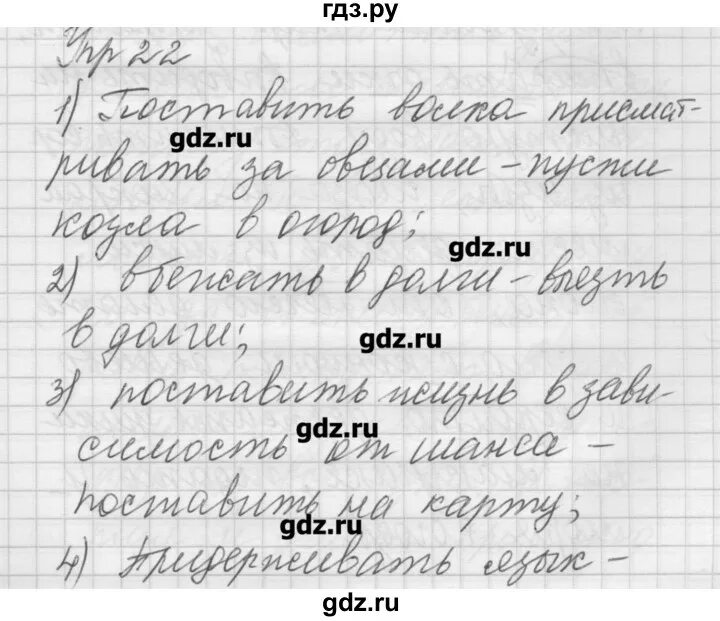 гдз.ру
Упр 22
1) Поставить волка присмат-
gdz.ru
ривать за овцами - пусти
козла в огород;
gdz.ru
2) вбежать в долги - влезть
в долги;
gdz.ru
3) поставить жизнь в зави-
gdz.ru
симость от шанса -
поставить на карту;
gdz.ru
4) Придерживать язык -
gdz.ru